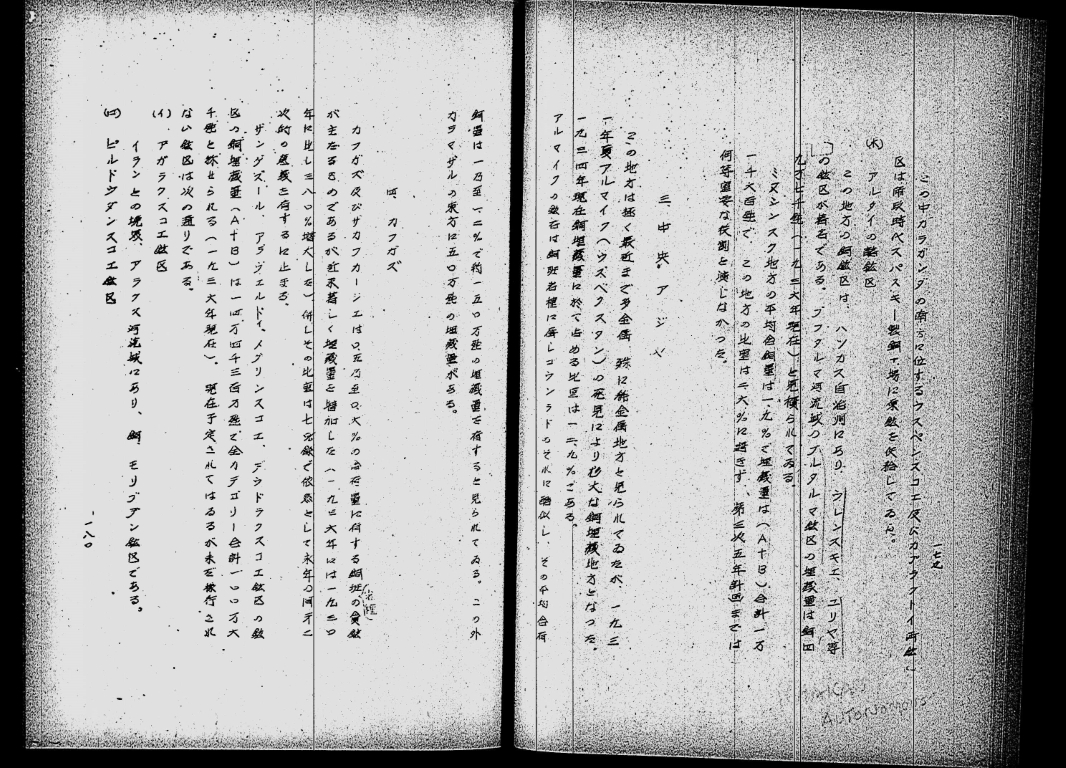 一七九
この中カラガンダの南方に位するウスペンスコエ及びカナクトイ両鉱
区は帝政時代スパスキー製銅工場に原鉱を供給してゐた。
(ホ) アルタイの諸鉱区
この地方の銅鉱区は、ハカス自治州にあり、ウレンスキエ、ユリヤ等
の鉱区が著名である。ブフタルマ河流域のブルタルマ鉱区の埋蔵量は銅四
九万七千瓲(一九三六年現在)と見積られてゐる。
ミヌシンスク地方の平均含銅量は一.九%で埋蔵量は(A+B)合計一万
一千六百瓲で、この地方の比重は二.六%に過ぎず、第三次五年計画までは
何等重要な役割を演じなかった。
三 中央アジヤ
この地方は極く最近まで多金属、殊に鉛金属地方と見られてゐたが、一九三
一年頃アルマイク(ウズベクスタン)の発見により尨大な銅埋蔵地方となった。
一九三四年現在銅埋蔵量に於て占める比重は一二.九%である。
アルマイクの鉱石は銅斑岩種に属しコウンラドのそれに酷似し、その平均含有
銅量は一乃至一.二%で約一五〇万瓲の埋蔵量を有すると見られてゐる。この外
カラマザルの東方に五〇万瓲の埋蔵量がある。
四、カフカズ
カフカズ及びザカフカージエは〇.五乃至〇.六%の含有量に有する銅斑の貧鉱
が主なるものであるが近来著しく埋蔵量を増加した(一九三六年には一九三〇
年に比し三八〇%増大した)、併しその比重は七%余で依然として末年の間第二
次的の意義を有するに止まる。
ザンゲズール、アラヴェルド、メグリンスコエ、デウドラクスコエ鉱区の鉱
区の銅埋蔵量(A+B)は一四万四千三百万瓲で全カテゴリー合計一〇〇万六
千瓲と称せられる(一九三六年現在)。現在予定されてはゐるが未だ稼行され
ない鉱区は次の通りである。
(イ) アガラクスコエ鉱区
イランとの境界、アラクス河流域にあり、銅、モリブデン鉱区である。
(ロ) ピルドウダンスコエ鉱区
一八〇
AUTONOMOUS